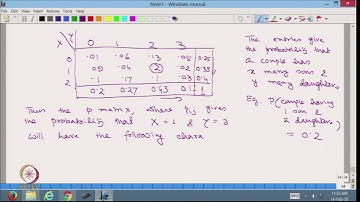 Note1 - Windows Journal
X Y 0 1 2 3
0 .01 .06 .13 .05 0.25
1 .05 .04 (2) .02 0.35
2 .1 .17 .1 .03 0.4
0.2 0.27 0.43 0.1 1
Then the p matrix, where Pij gives
the probability that X = i & Y = j
will have the following chara
The entries give
the probability that
a couple has
x many sons &
y many daughters.
Eg: P(couple having
1 son &
2 daughters)
= 0.2